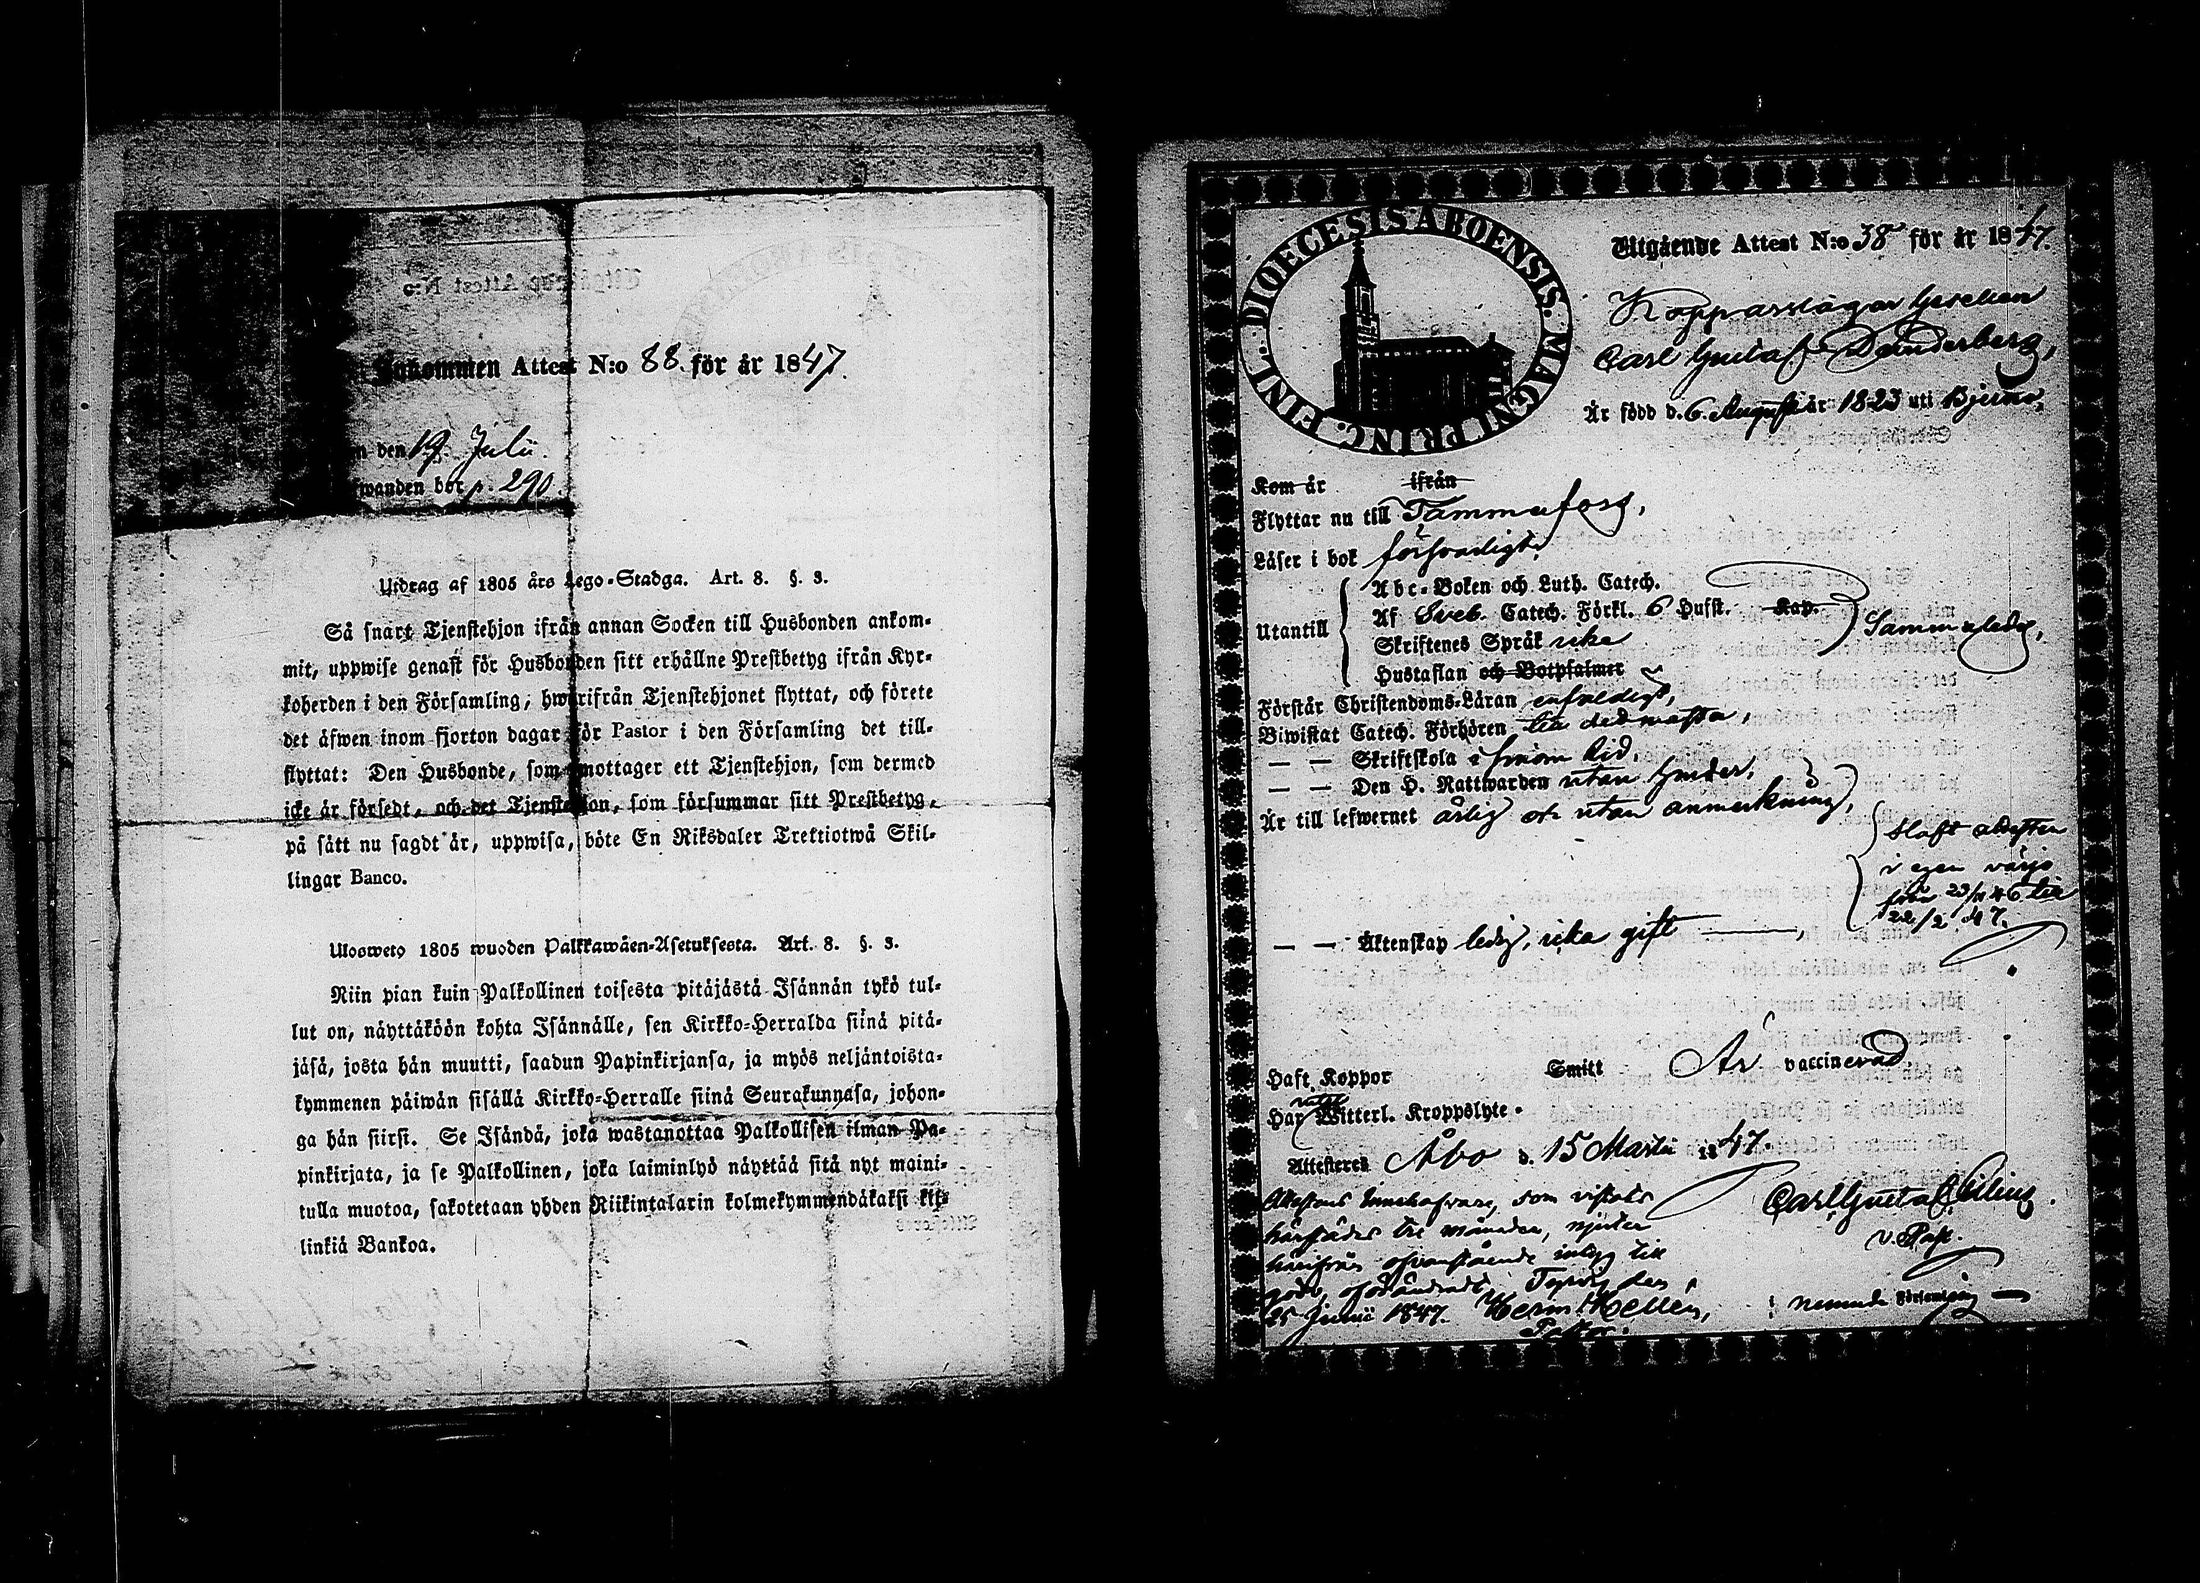 Inkommen Attest N:o 88. för år 1847.
n den 19. Julii.
wanden bok p. 290
Utdrag af 1805 års Lego-Stadga. Art. 8. §. 3.
Så snart Tjenstehjon ifrån annan Socken till Husbonden ankom-
mit, uppwise genast för Husbonden sitt erhållne Prestbetyg ifrån Kyr-
koherden i den Församling, hwarifrån Tjenstehjonet flyttat, och förete
det äfwen inom fjorton dagar för Pastor i den Församling det till-
flyttat: Den Husbonde, som emottager ett Tjenstehjon, som dermed
icke är försedt, och det Tjenstehjon, som försummar sitt Prestbetyg,
på sätt nu sagdt är, uppwisa, böte En Riksdaler Trettiotwå Skil-
lingar Banco.
Ulosweto 1805 wuoden Palkkawäen-Asetuksesta. Art. 8. §. 3.
Niin pian kuin Palkollinen toisesta pitäjästä Isännän tykö tul-
lut on, näyttäköön kohta Isännälle, sen Kirkko-Herralda siinä pitä-
jäsä, josta hän muutti, saadun Papinkirjansa, ja myös neljäntoista-
kymmenen päiwän sisällä Kirkko-Herralle siinä Seurakunnasa, johon-
ga hän siirsi. Se Isändä, joka wastanottaa Palkollisen ilman Pa-
pinkirjata, ja se Palkollinen, joka laiminlyö näyttää sitä nyt maini-
tulla muotoa, sakotetaan yhden Riikintalarin kolmekymmendäkaksi kil-
linkiä Bankoa.
DIOECESIS ABOENSIS. MAGNI PRINC. FINL.
Utgående Attest N:o 38 för år 1847.
Kopparslagar Gesellen
Carl Gustaf Dunderberg,
Är född d. 6 Augusti år 1823 uti Bjerno,
Kom år ifrån
Flyttar nu till Tammerfors,
Läser i bok försvarligt,
Utantill
Abc-Boken och Luth. Catech.
Af Sveb. Catech. Förkl. 6 Hufst. Kap.
Skriftenes Språk icke
Hustaflan och Botpsalmer
Sammaledes,
Förstår Christendoms-Läran enfaldigt,
Biwistat Catech. Förhören till det mesta,
— — Skriftskola i sinom tid,
— — Den H. Nattwarden utan hinder,
Är till lefwernet ärlig och utan anmerkning,
Haft afsked
i egen värjo
från 23/11 46 till
22/2 47.
— — Äktenskap ledig, icke gift —,
Haft Koppor Smitt Är vaccinerad
Har Witterl. Kroppslyte
Attesteres Åbo d. 15 Martii 1847.
Attestens Innehafvare, som vistats
härstädes tre månader, njuter
härifrån ofvanstående intyg till
godo, oförändradt,
25 Junii 1847. Herm: Hellén,
Pastor.
Carl Gustaf
v. Past.
i nemnde Församling —